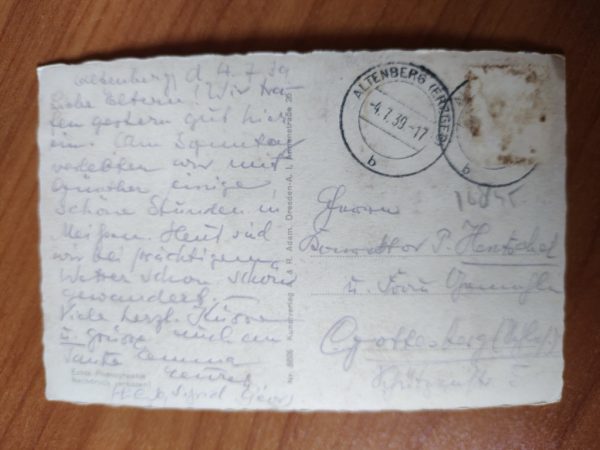 Altenberg, d. 4.7.39
Liebe Eltern! Wir tra-
fen gestern gut hier
ein. Am Sonntag
verlebten wir mit
Günther einige
schöne Stunden in
Meißen. Heut sind
wir bei prächtigem
Wetter schon schön
gewandert.
Viele herzl. Küsse
u. Grüße auch an
Tante Emma
Echte Photographie
Nachdruck verboten!
Nr. 8606 Kunstverlag A. & R. Adam, Dresden-A. 1, 26
ALTENBERG (ERZGEB)
-4.7.39.-17
b
Herrn
P. Hentschel
u. Frau Gemahlin
Gottesberg (Schles.)
5